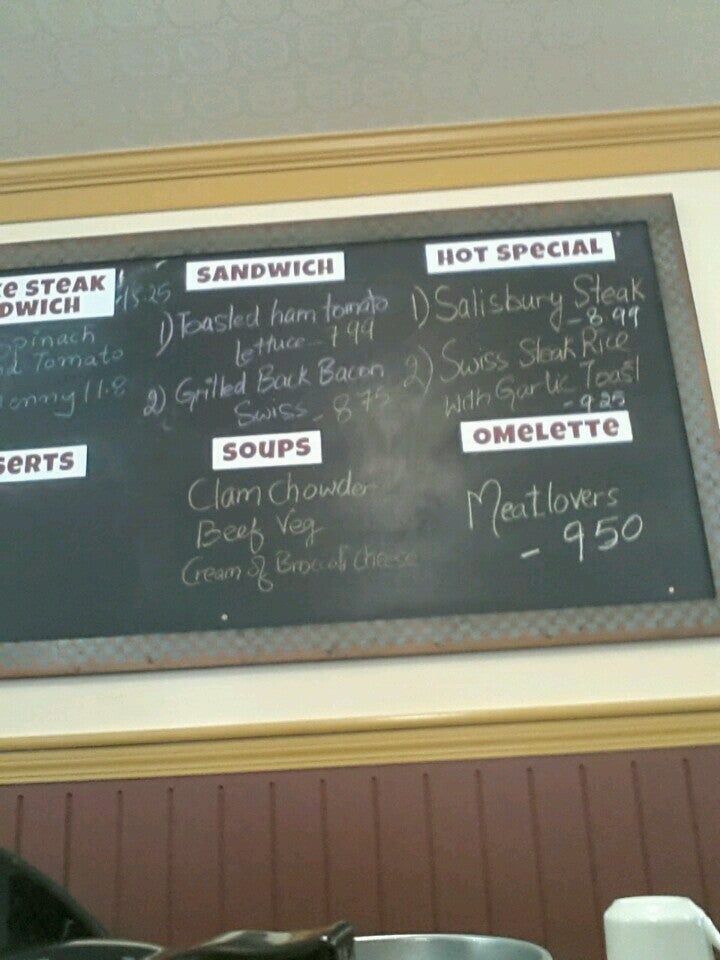 STEAK
DWICH
15.25
Spinach
Tomato
11.8
SERTS
SANDWICH
1) Toasted ham tomato
lettuce - 7 99
2) Grilled Back Bacon
Swiss - 8 75
SOUPS
Clam Chowder
Beef Veg
Cream of Broccoli Cheese
HOT SPECIAL
1) Salisbury Steak
- 8.99
2) Swiss Steak Rice
with Garlic Toast
- 9.25
OMELETTE
Meatlovers
- 9 50